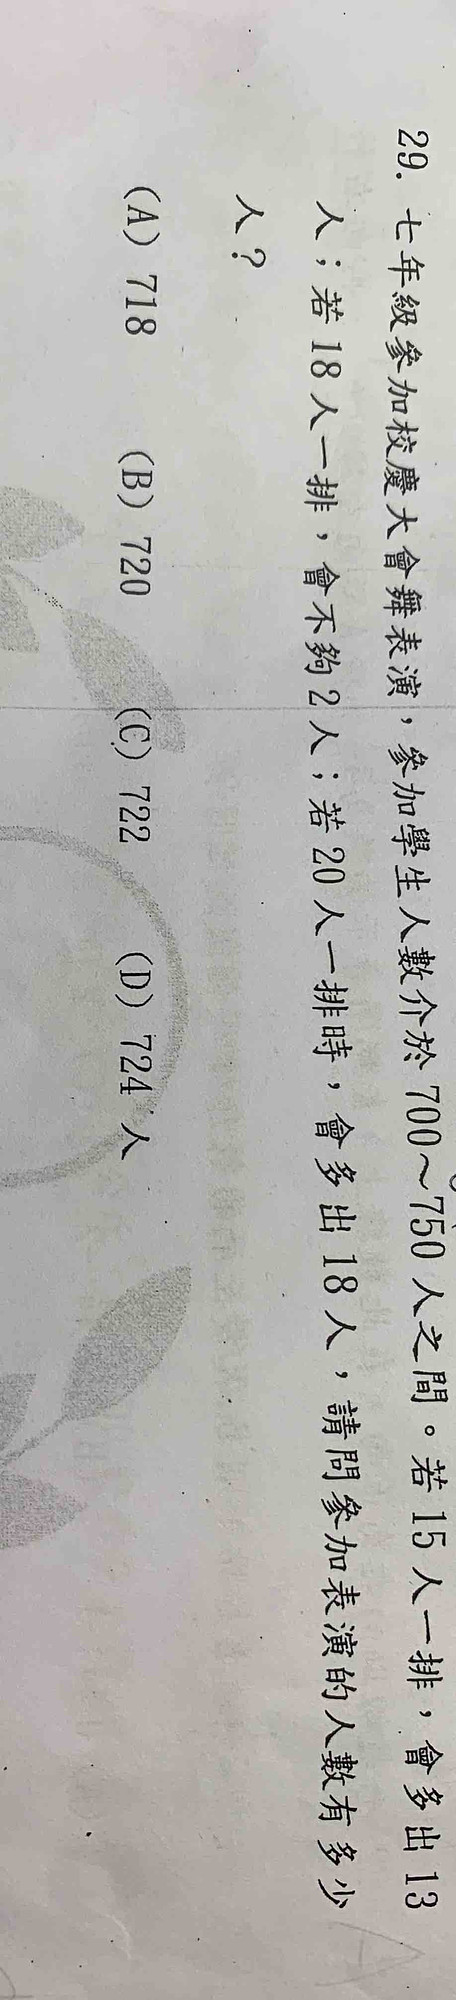 29. 七年級參加校慶大會舞表演，參加學生人數介於 700～750 人之間。若 15 人一排，會多出 13
人；若 18 人一排，會不夠 2 人；若 20 人一排時，會多出 18 人，請問參加表演的人數有多少
人？
(A) 718 (B) 720 (C) 722 (D) 724 人
A